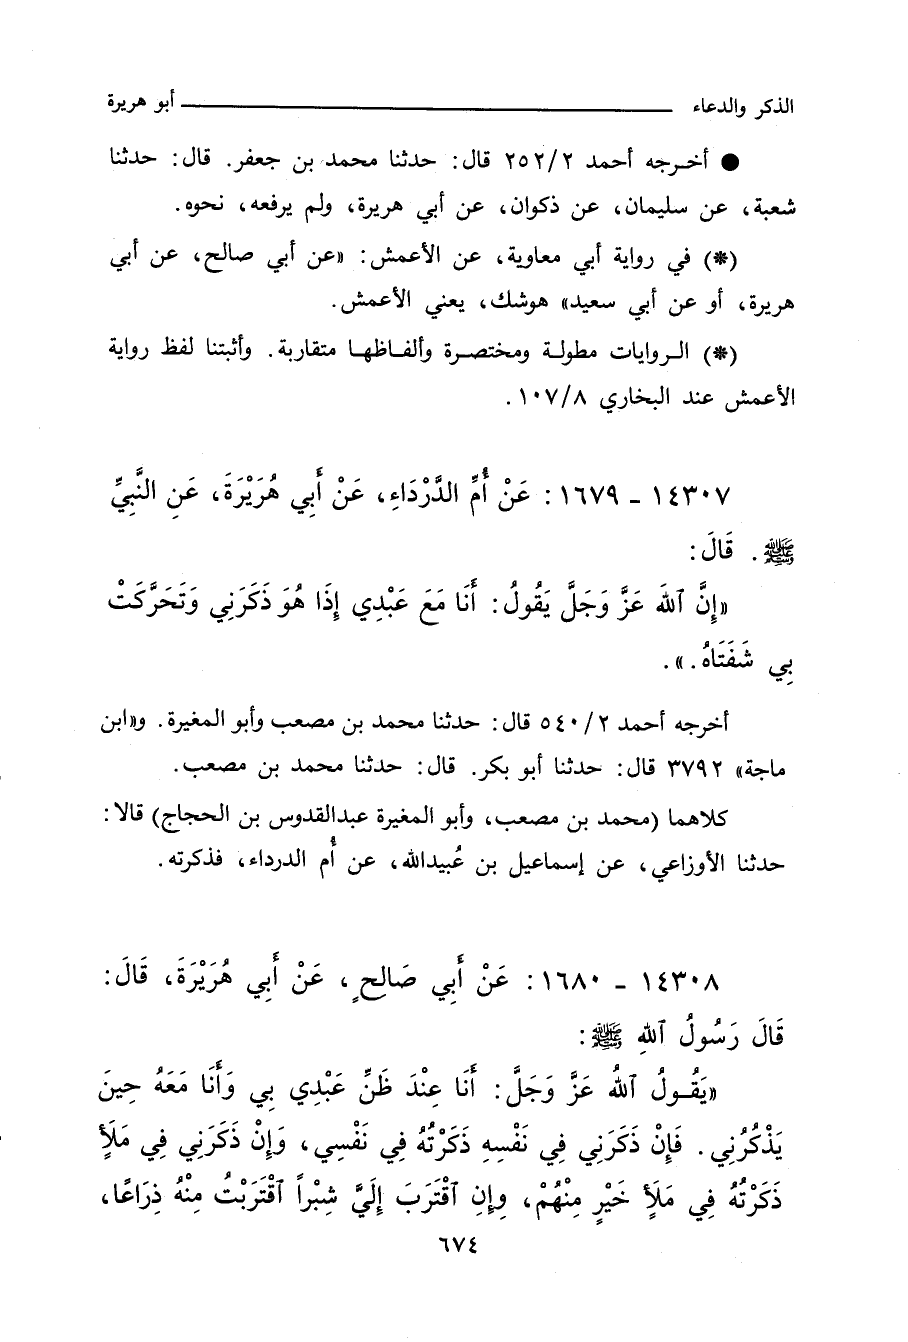 الذكر والدعاء ـــــــــــــــــــــــــ أبو هريرة
● أخـرجه أحمد ٢/ ٢٥٢ قال: حدثنا محمد بن جعفر. قال: حدثنا
شعبة، عن سليمان، عن ذكوان، عن أبي هريرة، ولم يرفعه، نحوه.
(*) في رواية أبي معاوية، عن الأعمش: «عن أبي صالح، عن أبي
هريرة، أو عن أبي سعيد» هوشك، يعني الأعمش.
(*) الـروايات مطولـة ومختصـرة وألفـاظهـا متقاربة. وأثبتنا لفظ رواية
الأعمش عند البخاري ٨/ ١٠٧.
١٤٣٠٧ - ١٦٧٩: عَنْ أُمِّ الدَّرْدَاءِ، عَنْ أَبِي هُرَيْرَةَ، عَنِ النَّبِيِّ
ﷺ. قَالَ:
«إِنَّ ٱللهَ عَزَّ وَجَلَّ يَقُولُ: أَنَا مَعَ عَبْدِي إِذَا هُوَ ذَكَرَنِي وَتَحَرَّكَتْ
بِي شَفَتَاهُ.».
أخرجه أحمد ٢/ ٥٤٠ قال: حدثنا محمد بن مصعب وأبو المغيرة. و«ابن
ماجة» ٣٧٩٢ قال: حدثنا أبو بكر. قال: حدثنا محمد بن مصعب.
كلاهما (محمد بن مصعب، وأبو المغيرة عبدالقدوس بن الحجاج) قالا:
حدثنا الأوزاعي، عن إسماعيل بن عُبيدالله، عن أُم الدرداء، فذكرته.
١٤٣٠٨ - ١٦٨٠: عَنْ أَبِي صَالحٍ، عَنْ أَبِي هُرَيْرَةَ، قَالَ:
قَالَ رَسُولُ ٱللهِ ﷺ:
«يَقُـولُ ٱللهُ عَزَّ وَجَلَّ: أَنَا عِنْدَ ظَنِّ عَبْدِي بِي وَأَنَا مَعَهُ حِينَ
يَذْكُرُنِي. فَإِنْ ذَكَرَنِي فِي نَفْسِهِ ذَكَرْتُهُ فِي نَفْسِي، وَإِنْ ذَكَرَنِي فِي مَلأٍ
ذَكَرْتُهُ فِي مَلأٍ خَيْرٍ مِنْهُمْ، وِإِنِ ٱقْتَرَبَ إِلَيَّ شِبْراً ٱقْتَرَبْتُ مِنْهُ ذِرَاعًا،
٦٧٤